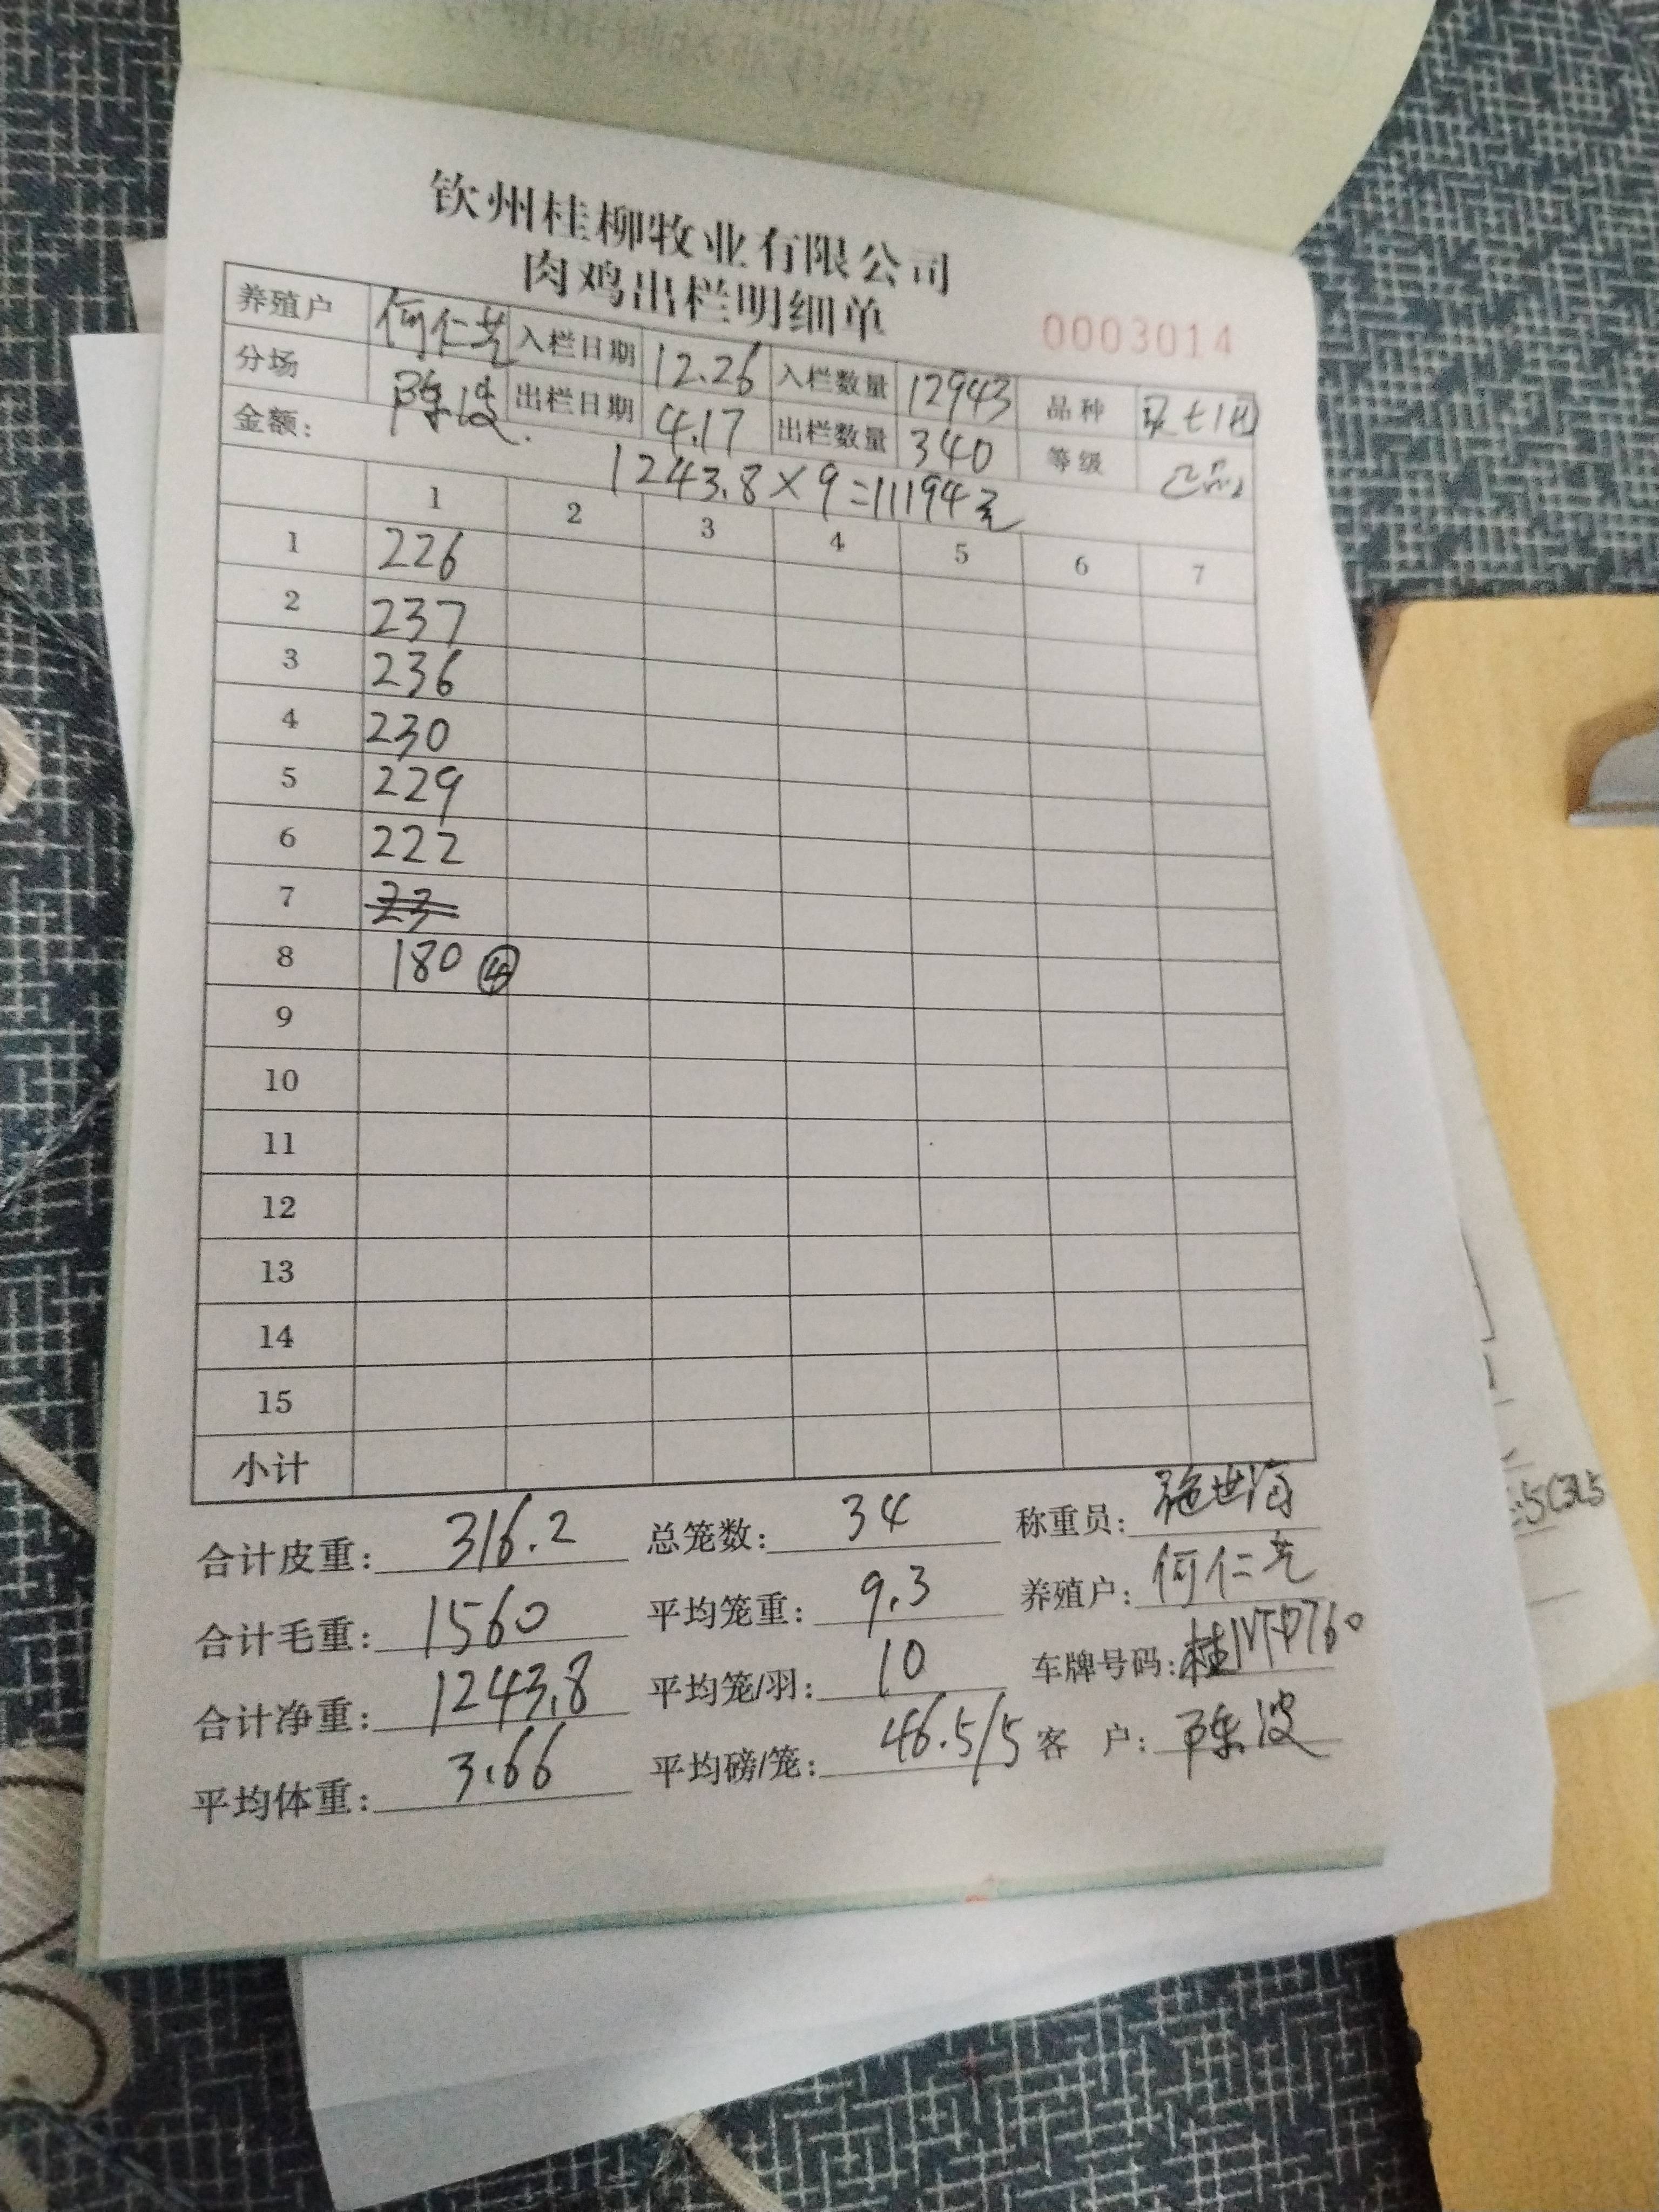 钦州桂柳牧业有限公司
肉鸡出栏明细单
0003014
养殖户 何仁芝 入栏日期 12.26 入栏数量 12943 品种
分场 陈波. 出栏日期 4.17 出栏数量 340 等级 乙品
金额: 1243.8×9=11194元
1 2 3 4 5 6 7
1 226
2 237
3 236
4 230
5 229
6 222
7 23
8 180 ④
9
10
11
12
13
14
15
小计
合计皮重: 316.2 总笼数: 34 称重员: 施世海
合计毛重: 1560 平均笼重: 9.3 养殖户: 何仁芝
合计净重: 1243.8 平均笼/羽: 10 车牌号码:
平均体重: 3.66 平均磅/笼: 46.5/5 客 户: 陈波